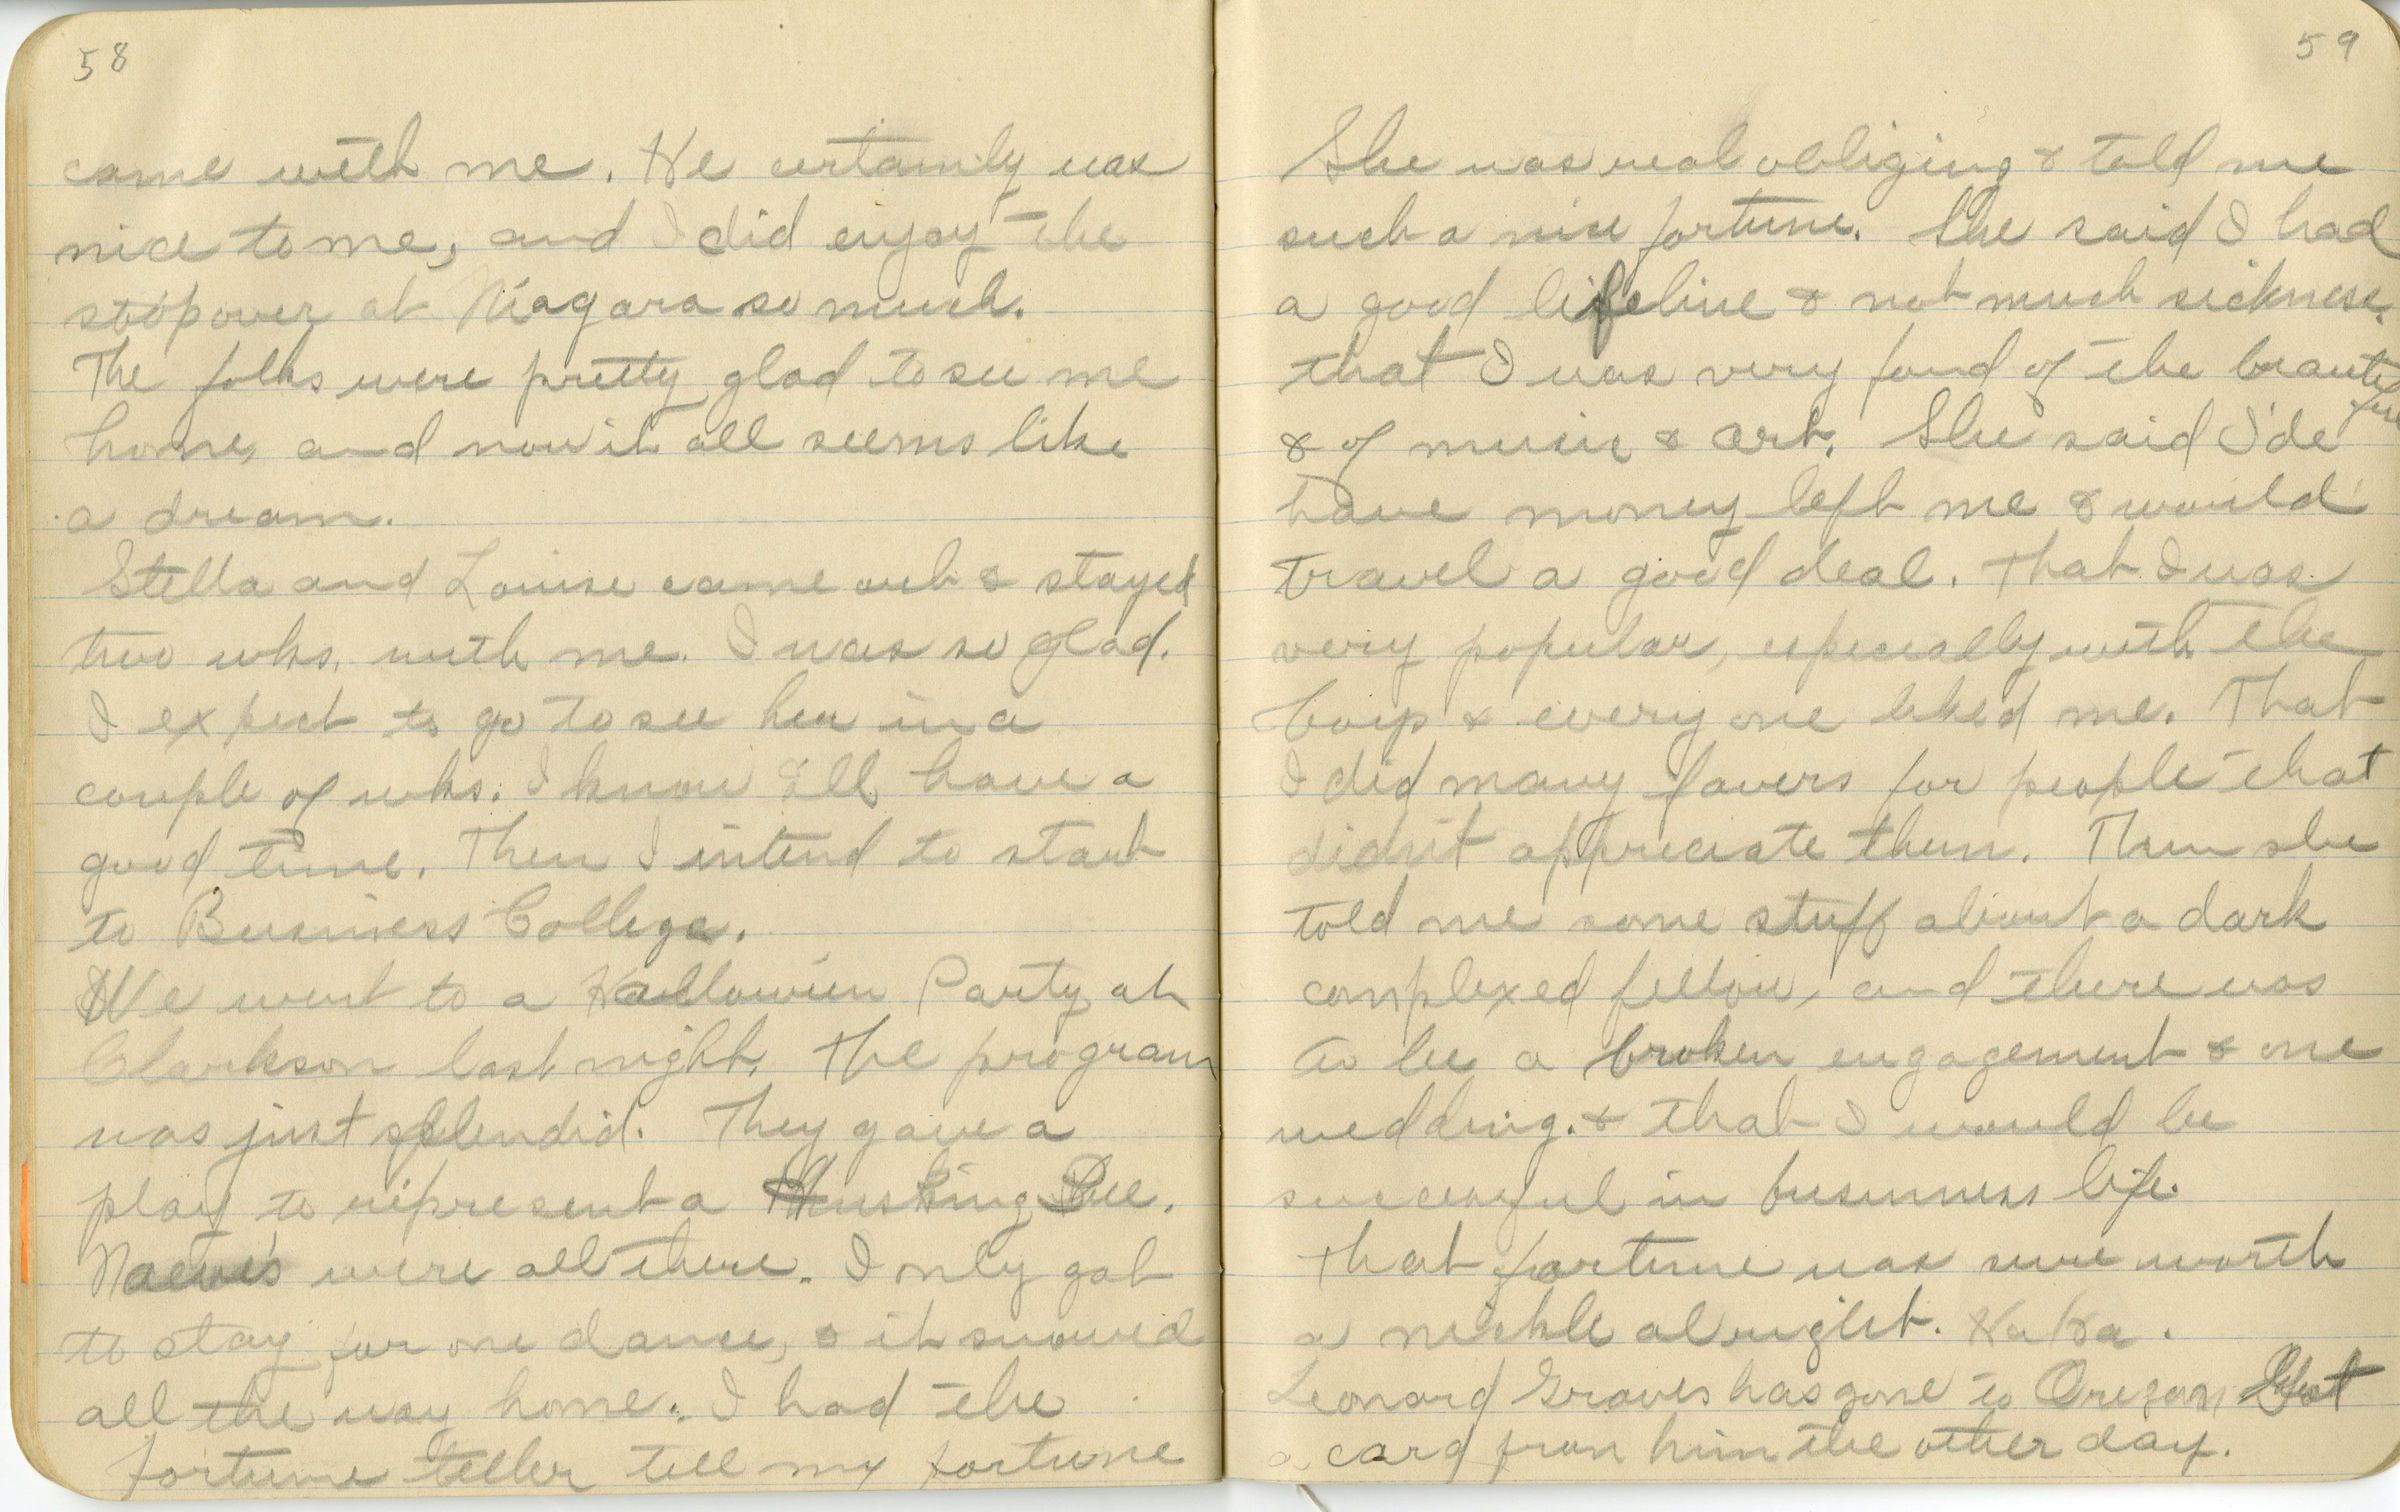 58
came with me. He certainly was
nice to me, and I did enjoy the
stopover at Niagara so much.
The folks were pretty glad to see me
home, and now it all seems like
a dream.
Stella and Louise came out & stayed
two wks. with me. I was so glad.
I expect to go to see her in a
couple of wks. I know I'll have a
good time. Then I intend to start
to Business College.
We went to a Hallowe'en Party at
Clarkson last night. The program
was just splendid. They gave a
play to represent a Husking Bee.
Naeve's were all there. I only got
to stay for one dance, & it snowed
all the way home. I had the
fortune teller tell my fortune
59
She was real obliging & told me
such a nice fortune. She said I had
a good lifeline & not much sickness.
that I was very fond of the beautiful
& of music & art. She said I'de
have money left me & would
travel a good deal. That I was
very popular, especially with the
boys & every one liked me. That
I did many favers for people that
didn't appreciate them. Then she
told me some stuff about a dark
complexed fellow, and there was
to be a broken engagement & one
wedding. & that I would be
successful in business life.
That fortune was sure worth
a nickle alright. Ha Ha.
Leonard Graves has gone to Oregon Got
a card from him the other day.